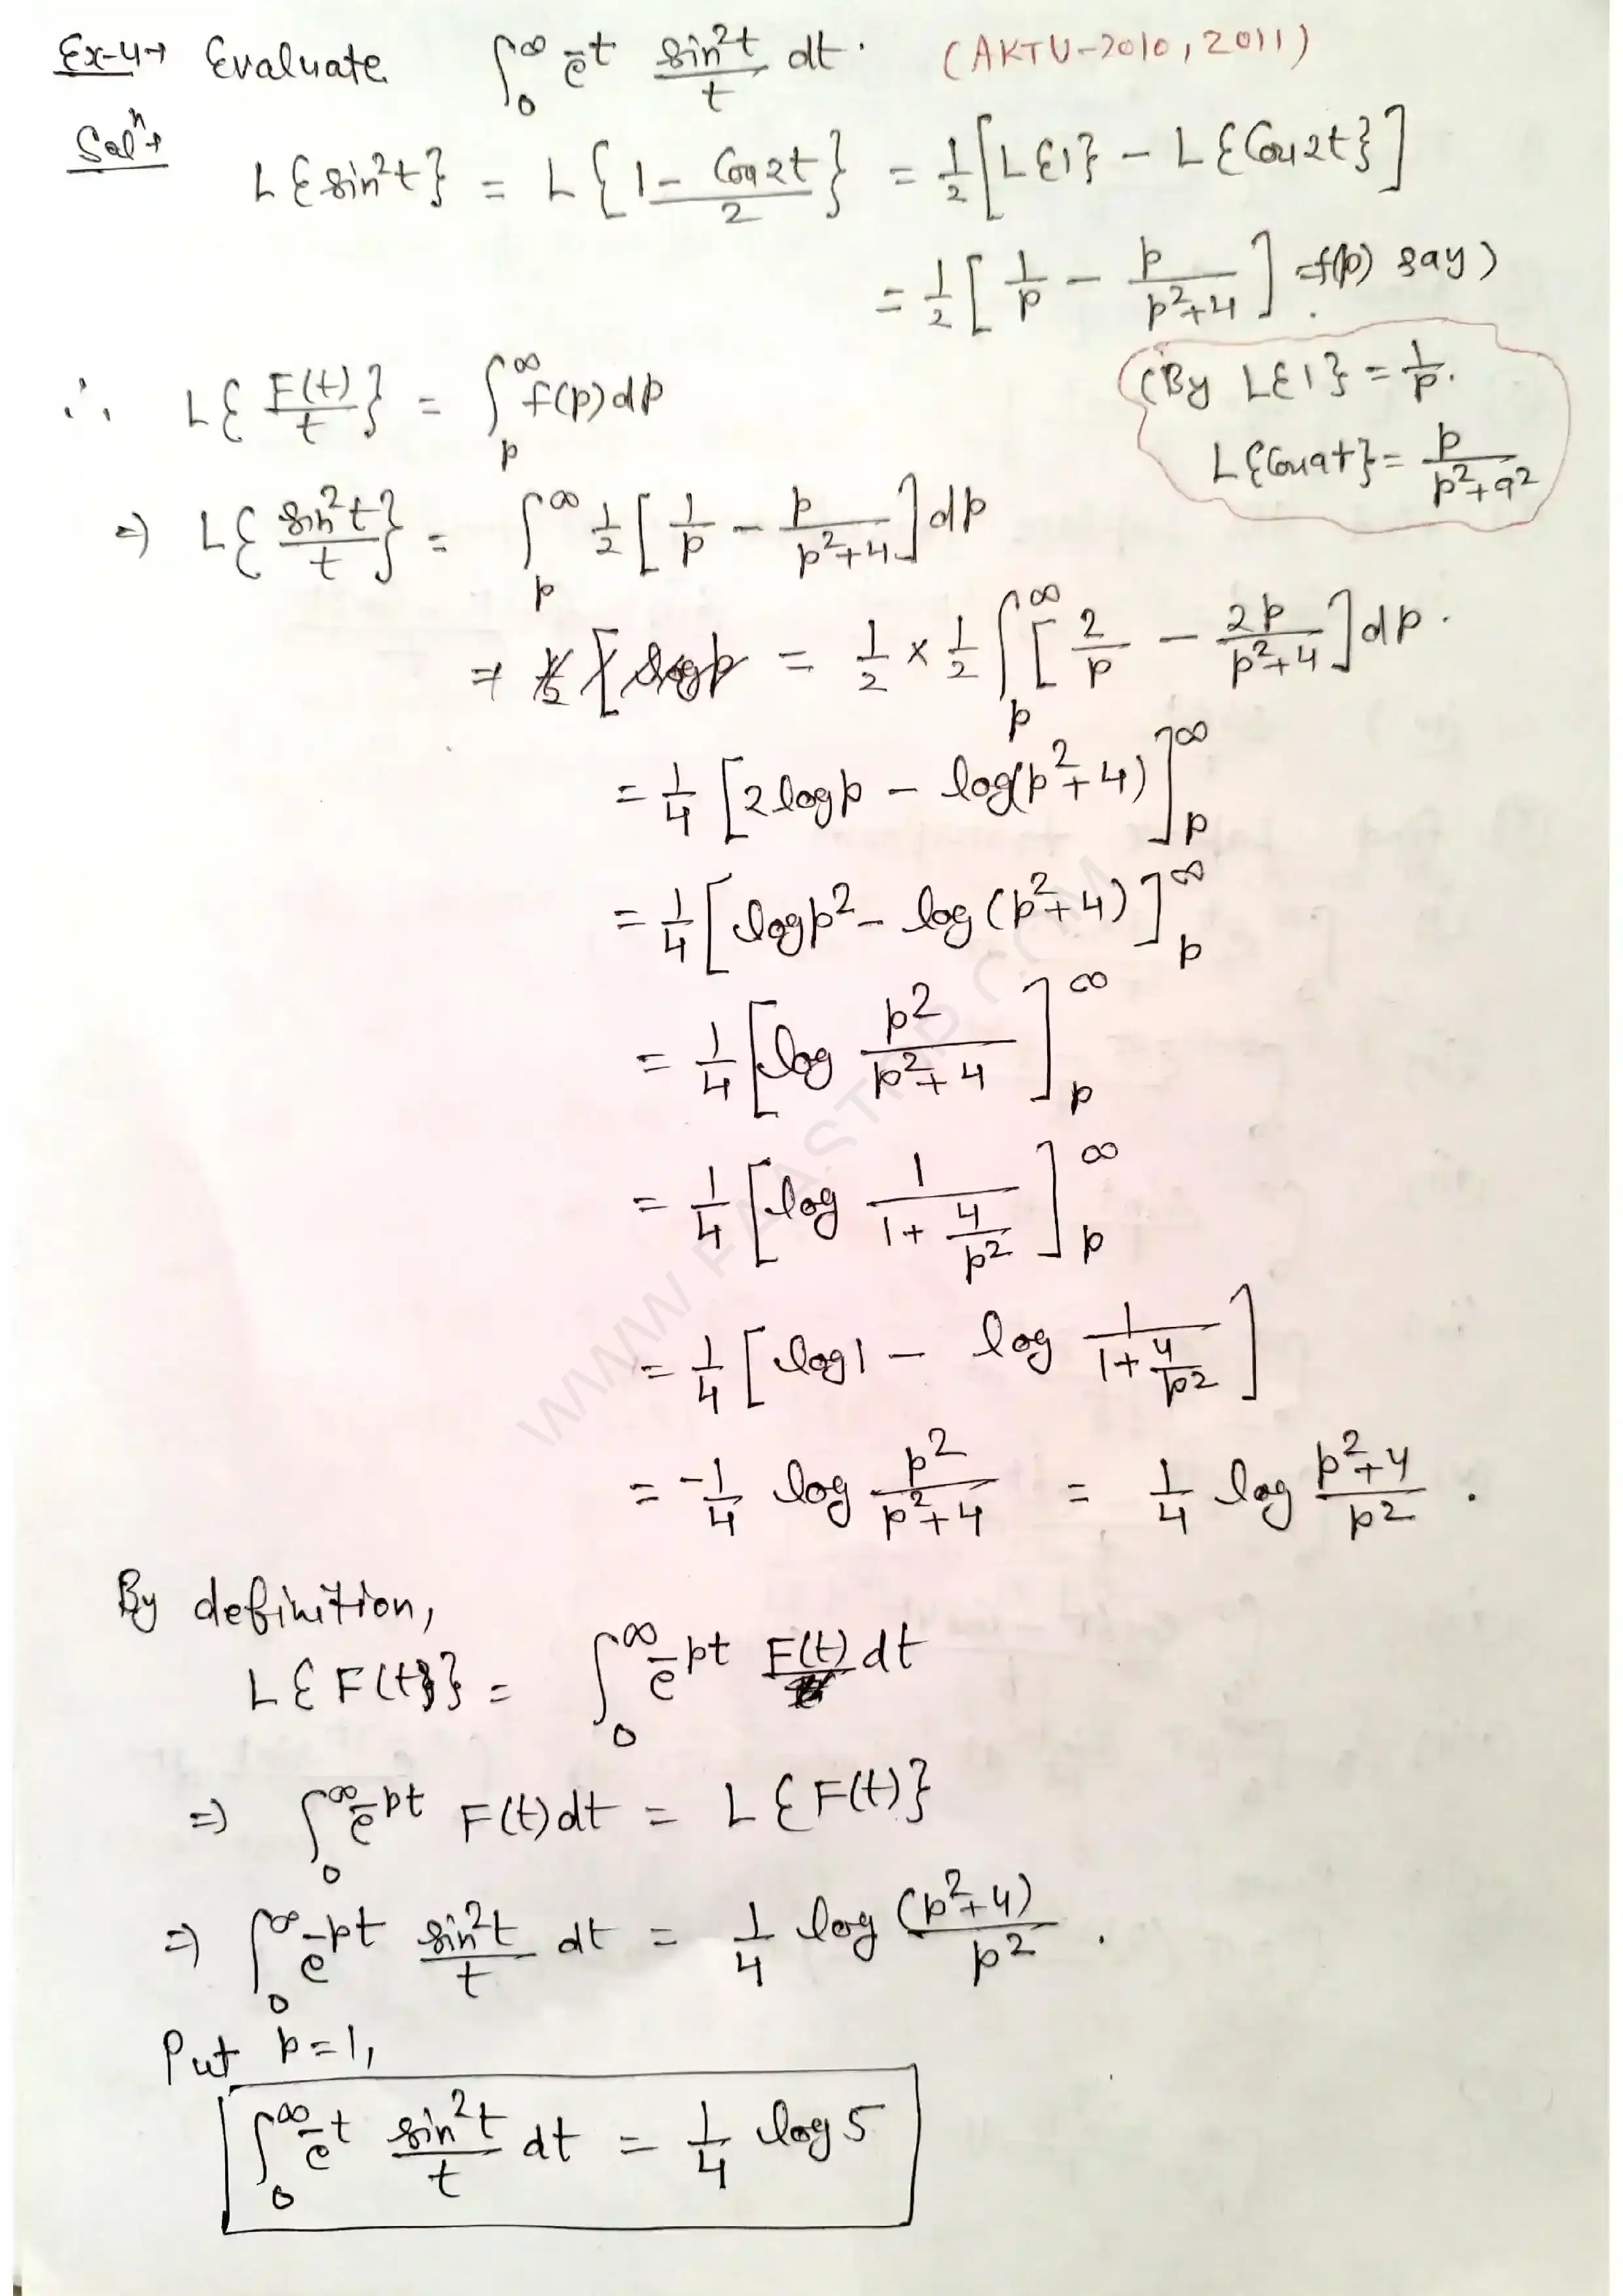 Ex-4→ Evaluate ∫₀^∞ e^-t sin²t/t dt. (AKTU-2010, 2011)
Solⁿ→ L{sin²t} = L{1-Cos2t/2} = 1/2[L{1} - L{Cos2t}]
= 1/2[1/p - p/p²+4] = f(p) say)
(By L{1} = 1/p.
∴ L{F(t)/t} = ∫_p^∞ f(p)dp
L{Cosat} = p/p²+a²
⇒ L{sin²t/t} = ∫_p^∞ 1/2[1/p - p/p²+4]dp
= 1/2 × 1/2 ∫_p^∞ [2/p - 2p/p²+4]dp.
= 1/4 [2logp - log(p²+4)]_p^∞
= 1/4 [logp² - log(p²+4)]_p^∞
= 1/4 [log p²/p²+4]_p^∞
= 1/4 [log 1/1+4/p²]_p^∞
= 1/4 [log1 - log 1/1+4/p²]
= -1/4 log p²/p²+4 = 1/4 log p²+4/p².
By definition,
L{F(t)} = ∫₀^∞ e^-pt F(t) dt
⇒ ∫₀^∞ e^-pt F(t)dt = L{F(t)}
⇒ ∫₀^∞ e^-pt sin²t/t dt = 1/4 log (p²+4)/p².
Put p=1,
∫₀^∞ e^-t sin²t/t dt = 1/4 log5